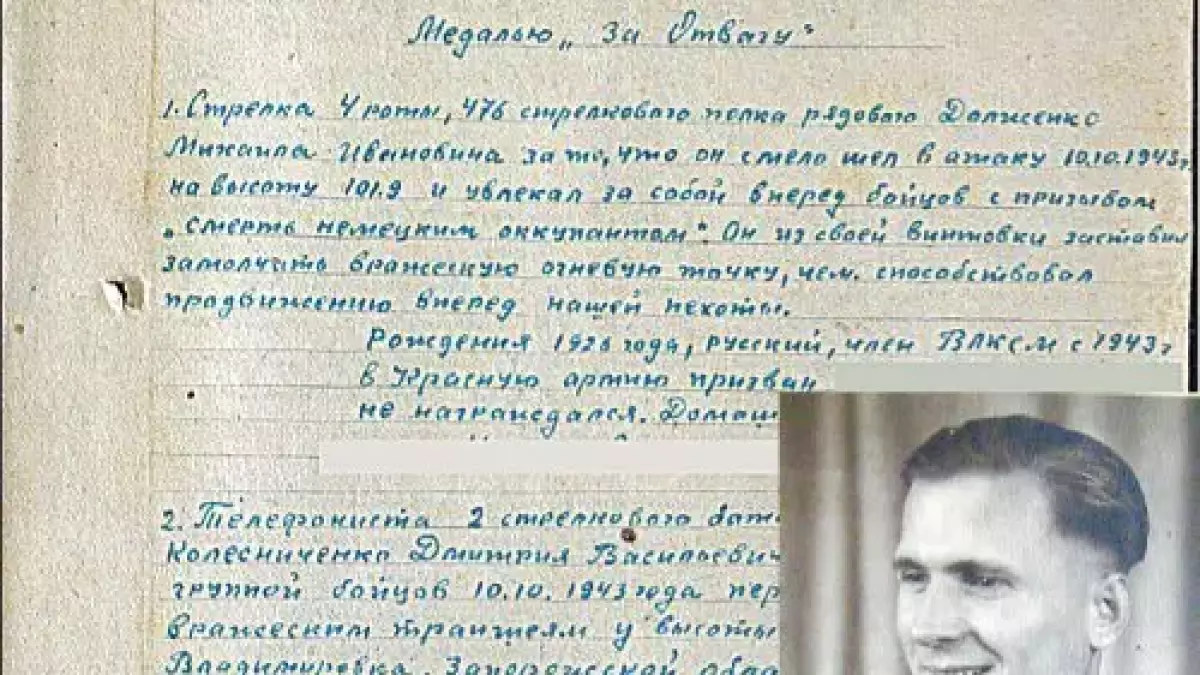 Медалью „За Отвагу"
1. Стрелка 4 роты, 476 стрелкового полка рядового Долженко
Михаила Ивановича за то, что он смело шел в атаку 10.10.1943г.
на высоту 101.9 и увлекал за собой вперед бойцов с призывом
„Смерть немецким оккупантам". Он из своей винтовки заставил
замолчать вражескую огневую точку, чем способствовал
продвижению вперед нашей пехоты.
Рождения 1926 года, русский, член ВЛКСМ с 1943г
в Красную армию призван
не награждался. Домаш
2. Телефониста 2 стрелкового бата
Колесниченко Дмитрия Васильевич
группой бойцов 10.10.1943 года пер
вражеским траншеям у высоты
Владимировка, Запорожской обла